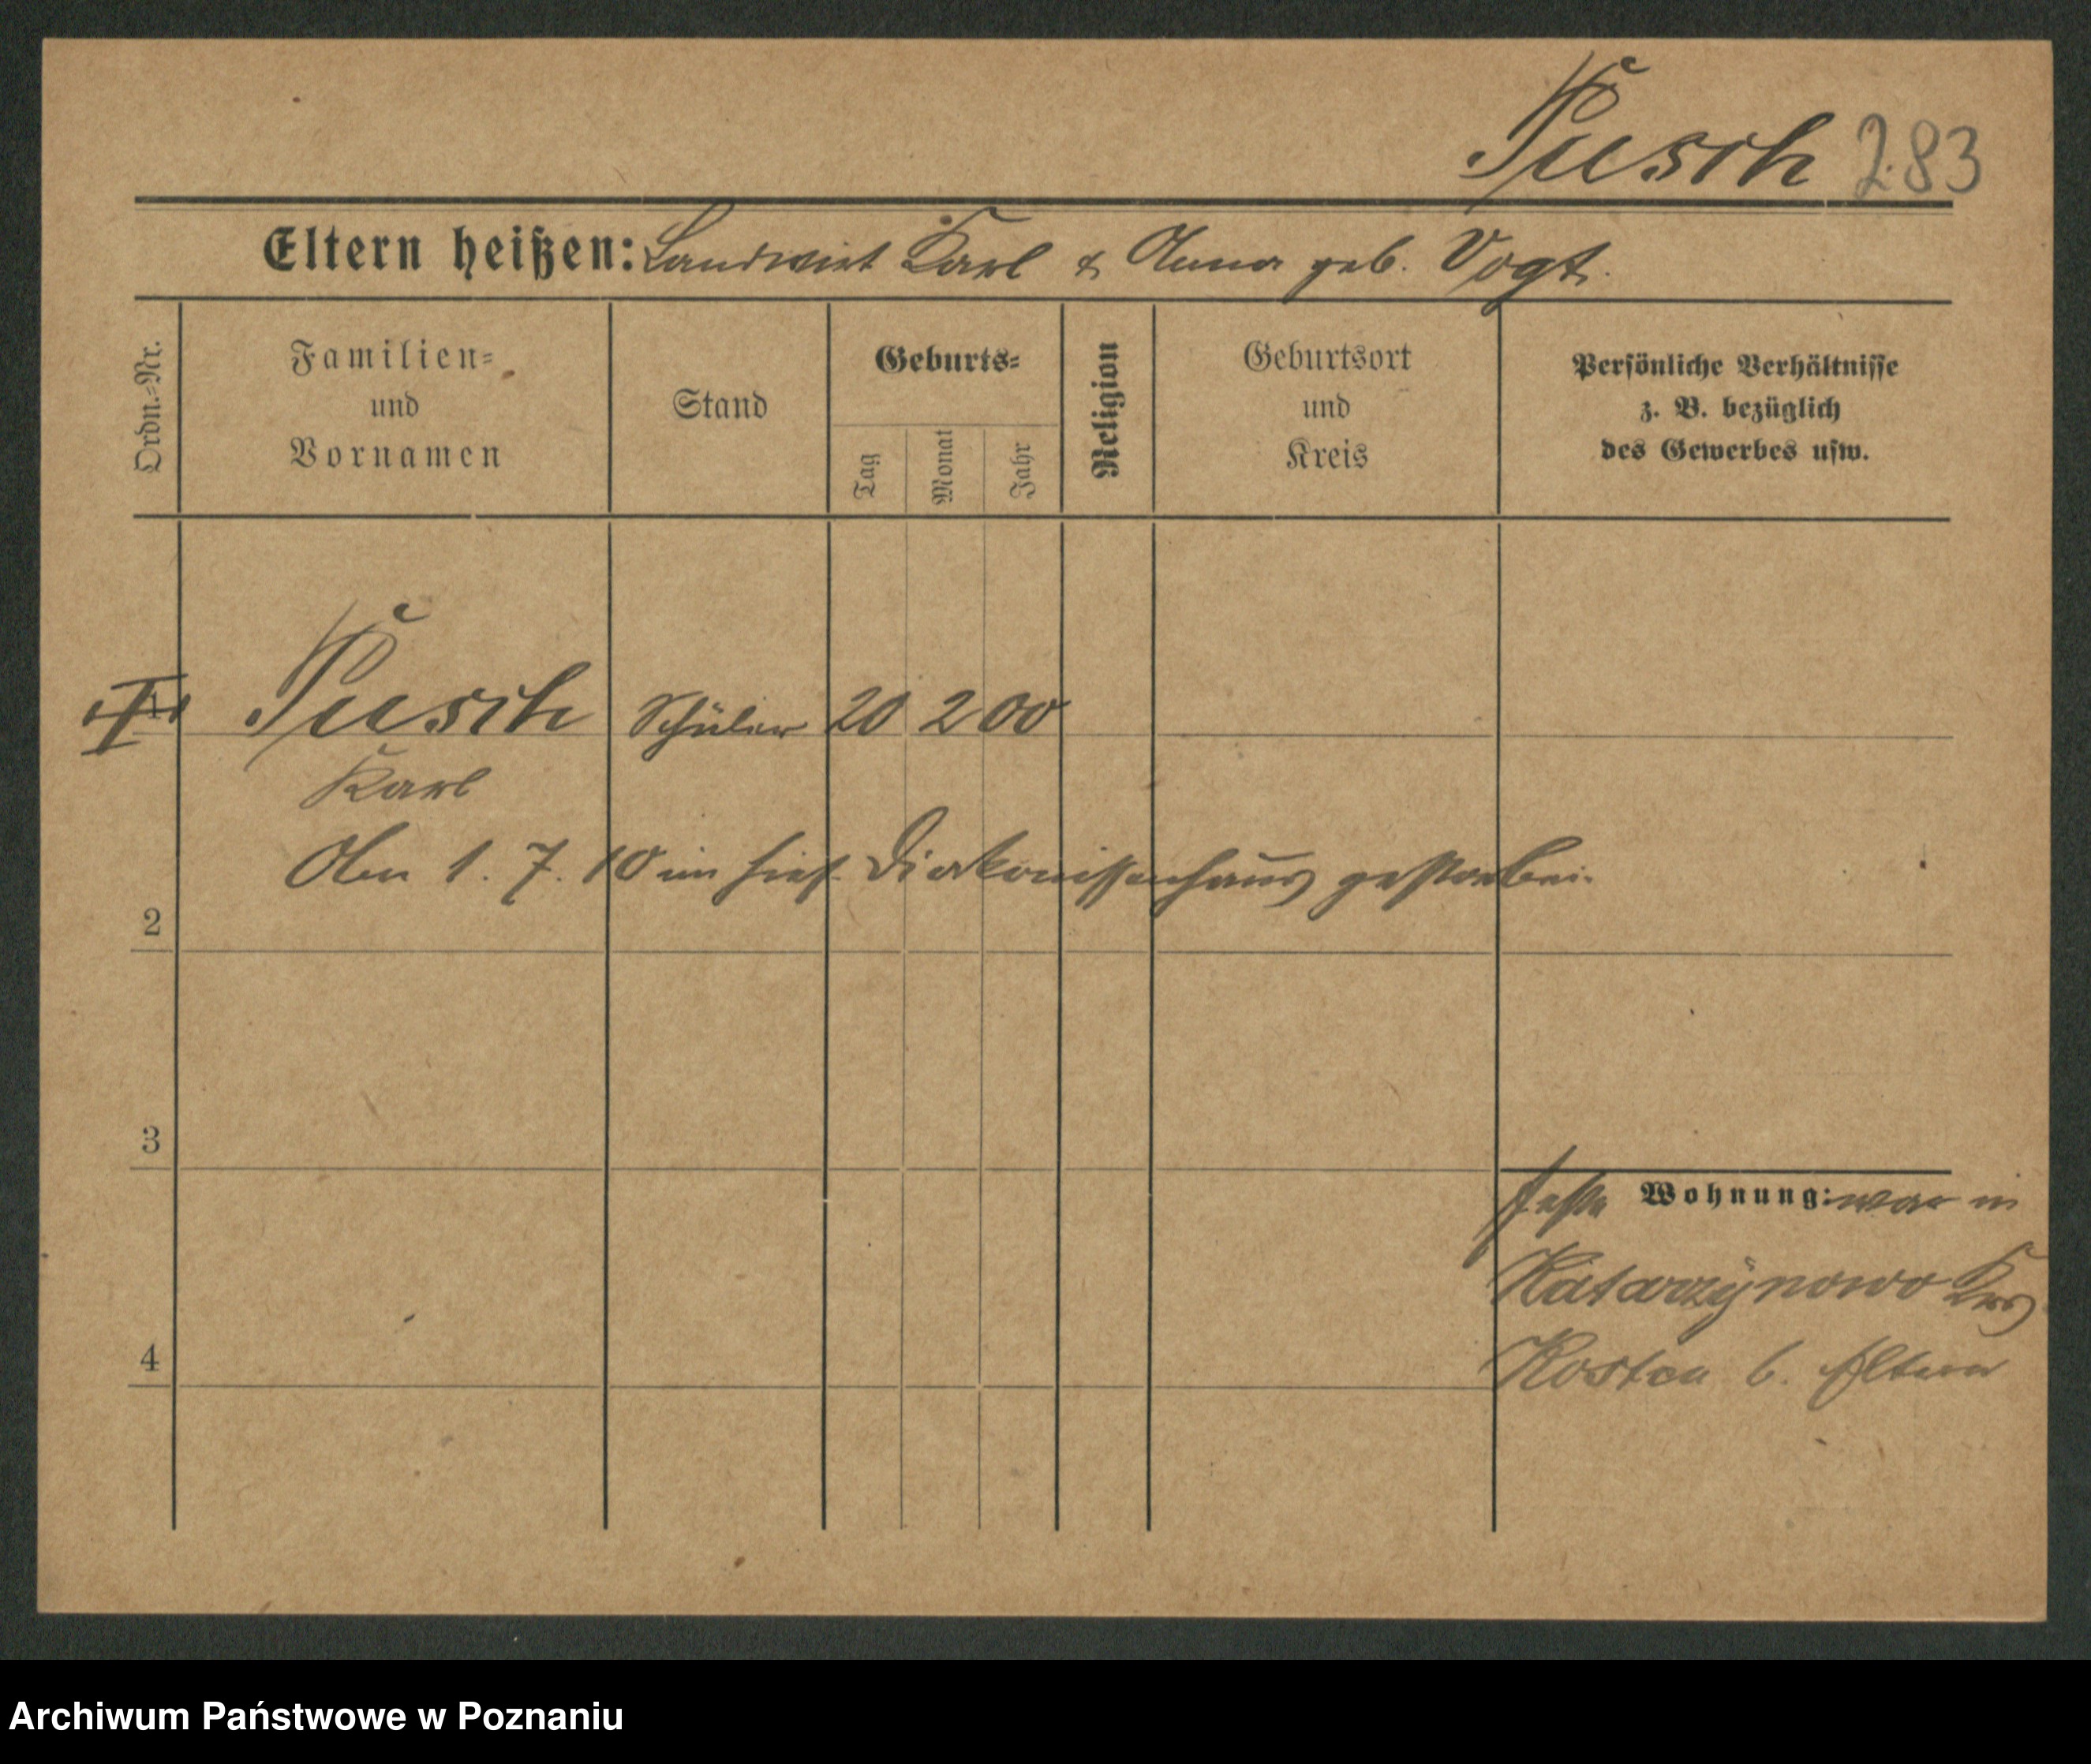 Pusch 283
Eltern heißen: Landwirt Karl & Anna geb. Vogt.
Ordn.-Nr.
Familien-
und
Vornamen
Stand
Geburts-
Tag
Monat
Jahr
Religion
Geburtsort
und
Kreis
Persönliche Verhältnisse
z. B. bezüglich
des Gewerbes usw.
1 Pusch Schüler 20 2 00
Karl
Am 1. 7. 10 im hies. Diakonissenhaus gestorben.
2
3
feste Wohnung: war in
Katarzynowo Krs
4
Kosten b. Eltern
Archiwum Państwowe w Poznaniu